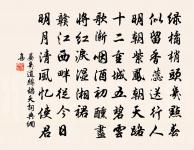 綠橘梢頭幾點春
似留香蕊送行人
明朝紫鳳朝天路
十二重城五碧雲
歌漸咽酒初醺盡
將紅淚濕湘裙
贛江西畔從今日
明月清風憶使君
晏幾道鷓鴣天詞